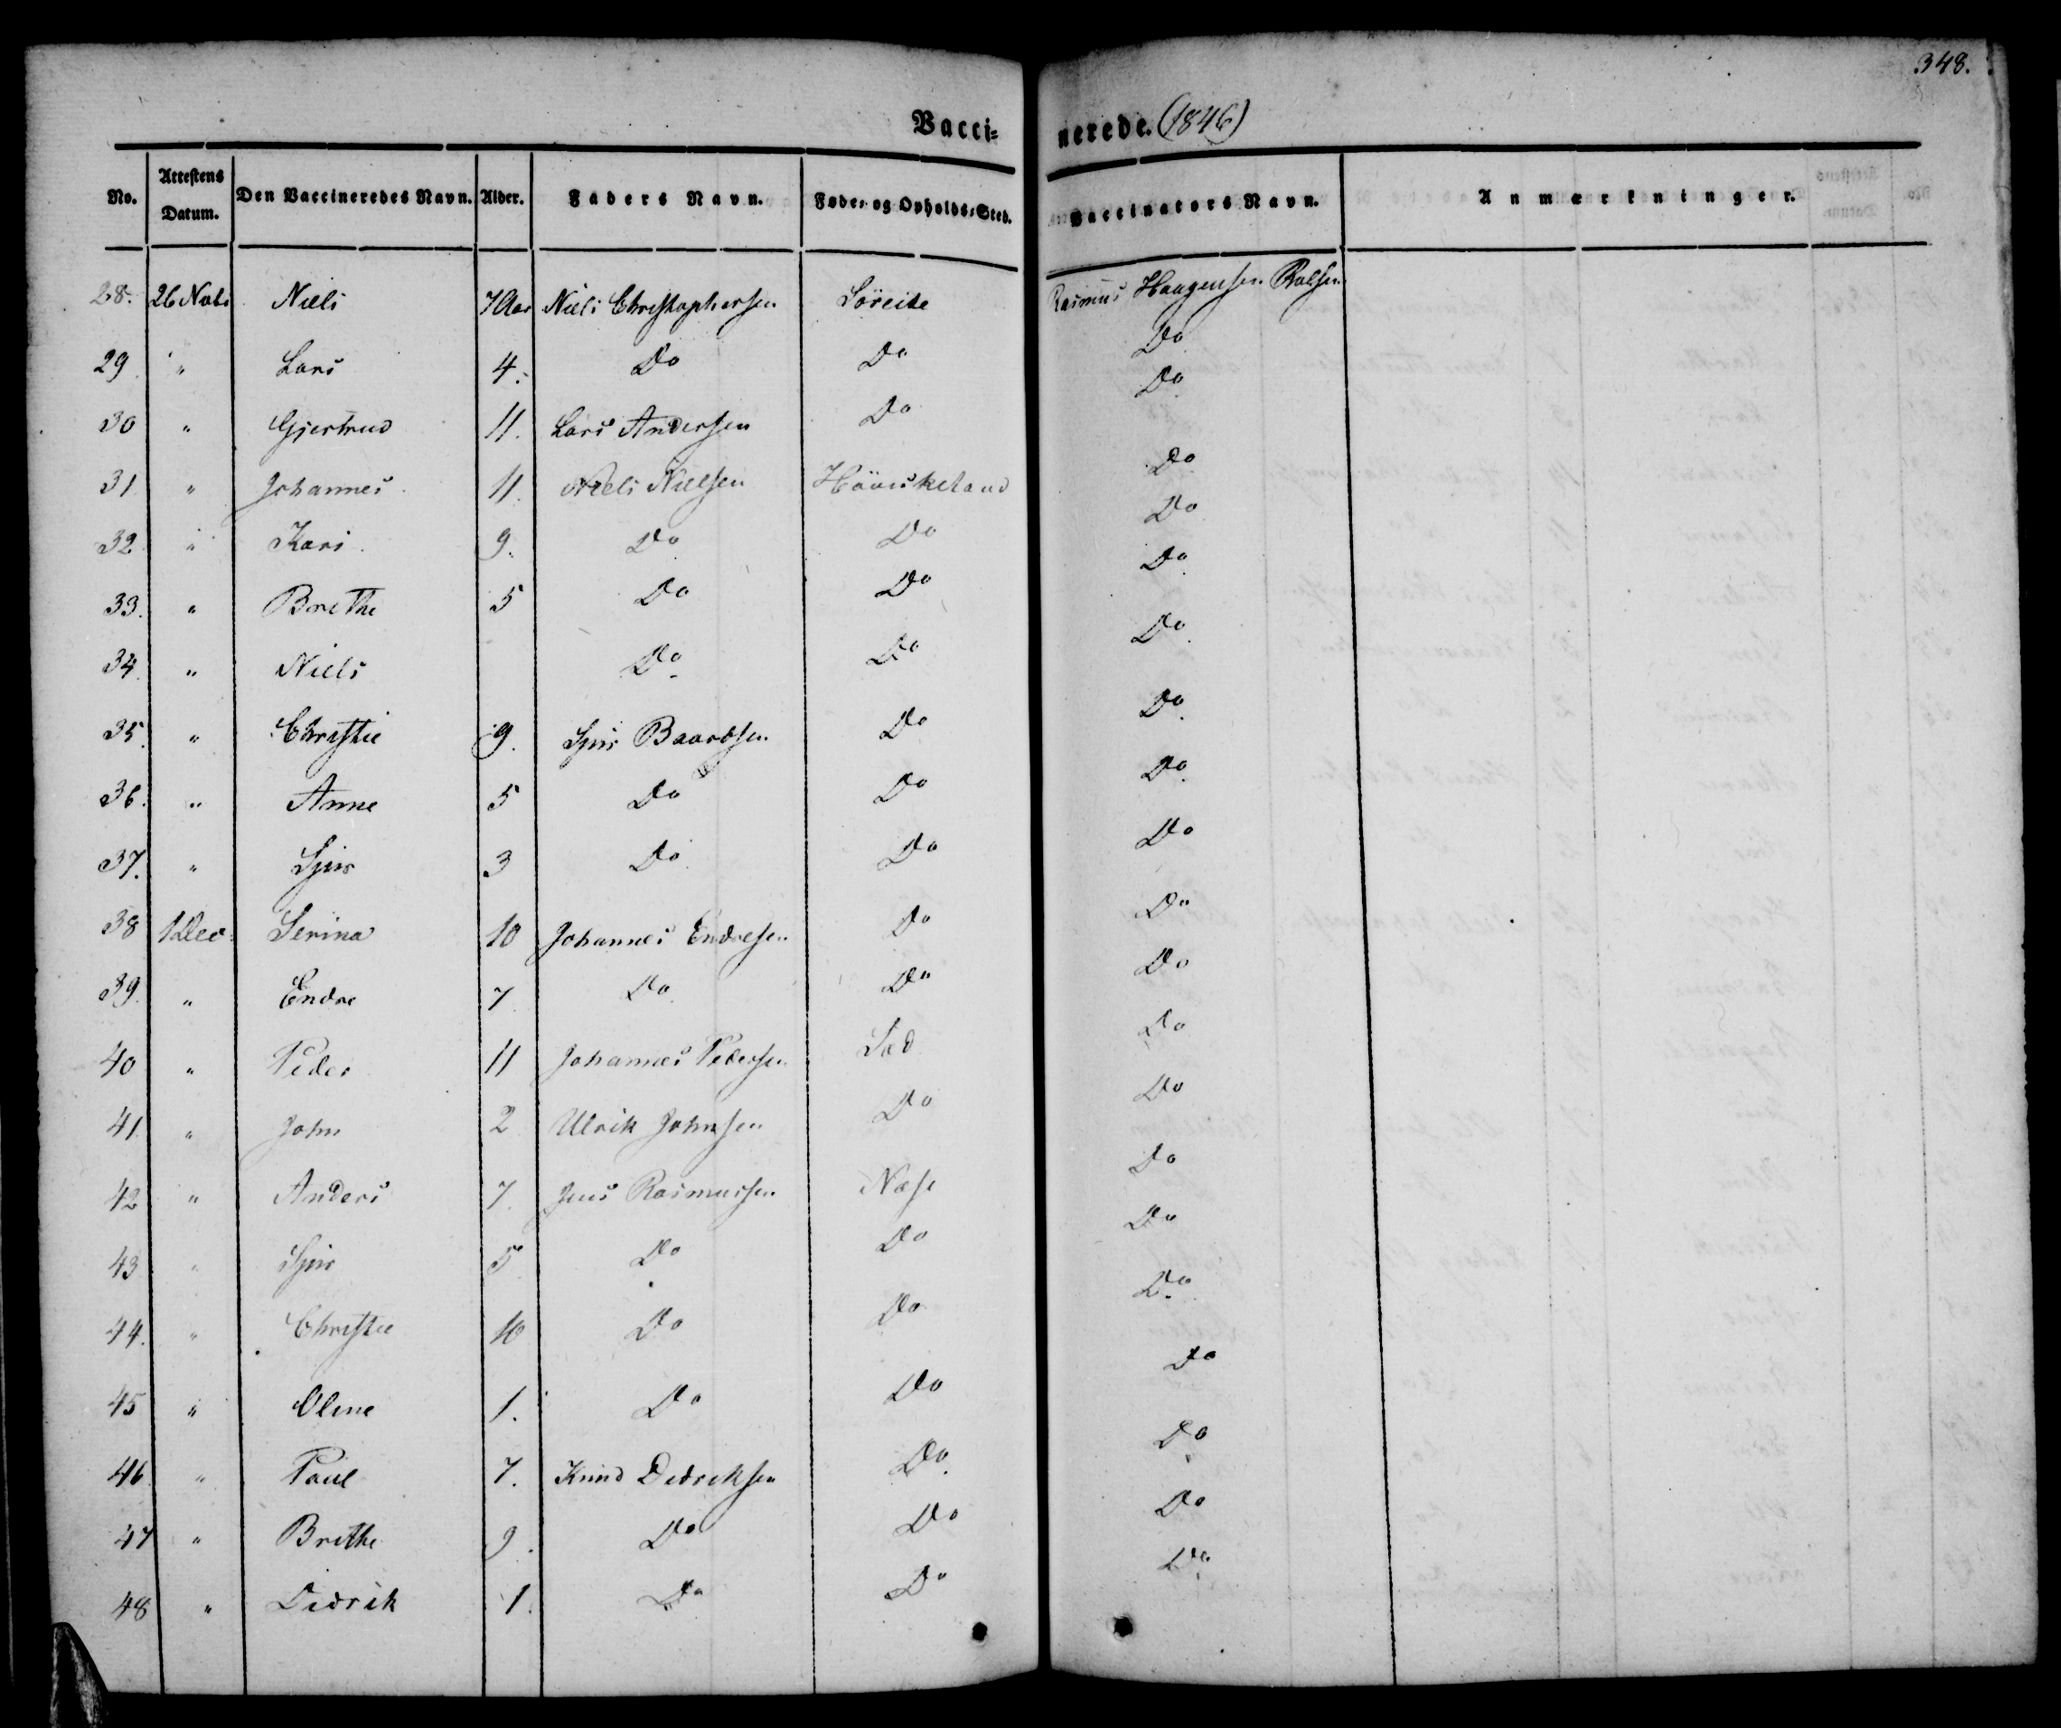 348.
Vacci-
nerede. (1846)
No. Attestens Datum. Den Vaccineredes Navn. Alder. Faders Navn. Føde- og Opholds-Sted. Vaccinators Navn. Anmærkninger.
28. 26 Novbr Niels 7 Aar Niels Christophersen Söreide Rasmus Haagensen
29 " Lars 4. Do Do Do
30 " Gjertrud 11. Lars Andersen Do Do
31 " Johannes 11. Niels Nielsen Do
32 " Kari 9. Do Do Do
33. " Brethe 5 Do Do Do
34. " Niels Do Do Do
35. " Christie 9. Sjur Baardsen Do Do
36. " Anne 5 Do Do Do
37. " Sjur 3 Do Do Do
38 1 Dec. Serina 10 Johannes Endresen Do Do
39. " Endre 7 Do Do Do
40 " Peder 11 Johannes Pedersen Do
41. " John 2 Ulrik Johnsen Do Do
42 " Anders 7. Jens Rasmussen Næse Do
43 " Sjur 5 Do Do Do
44. " Christie 10 Do Do Do
45 " Oline 1. Do Do Do
46 " Paul 7. Knud Didriksen Do Do
47 " Brithe 9. Do Do Do
48 " Didrik 1. Do Do Do